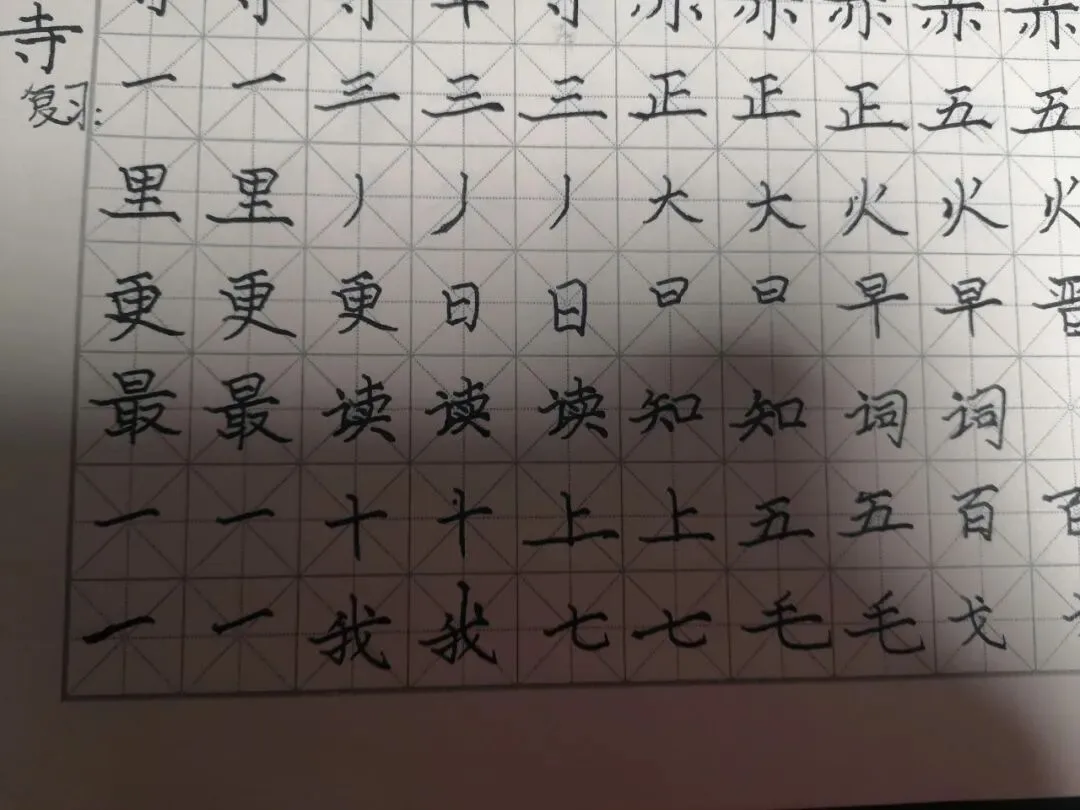 寺
赤 赤 赤
复习: 一 一 三 三 三 正 正 正 五 五
里 里 丿 丿 丿 大 大 火 火 火
更 更 更 日 日 曰 曰 早 早 晋
最 最 读 读 读 知 知 词 词
一 一 十 十 上 上 五 五 百 百
一 一 我 我 七 七 毛 毛 戈